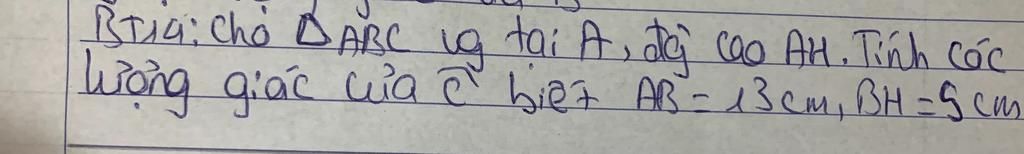 BT1a: Cho Δ ABC vg tại A, đg cao AH. Tính các
lượng giác của Ĉ biết AB = 13 cm, BH = 5 cm